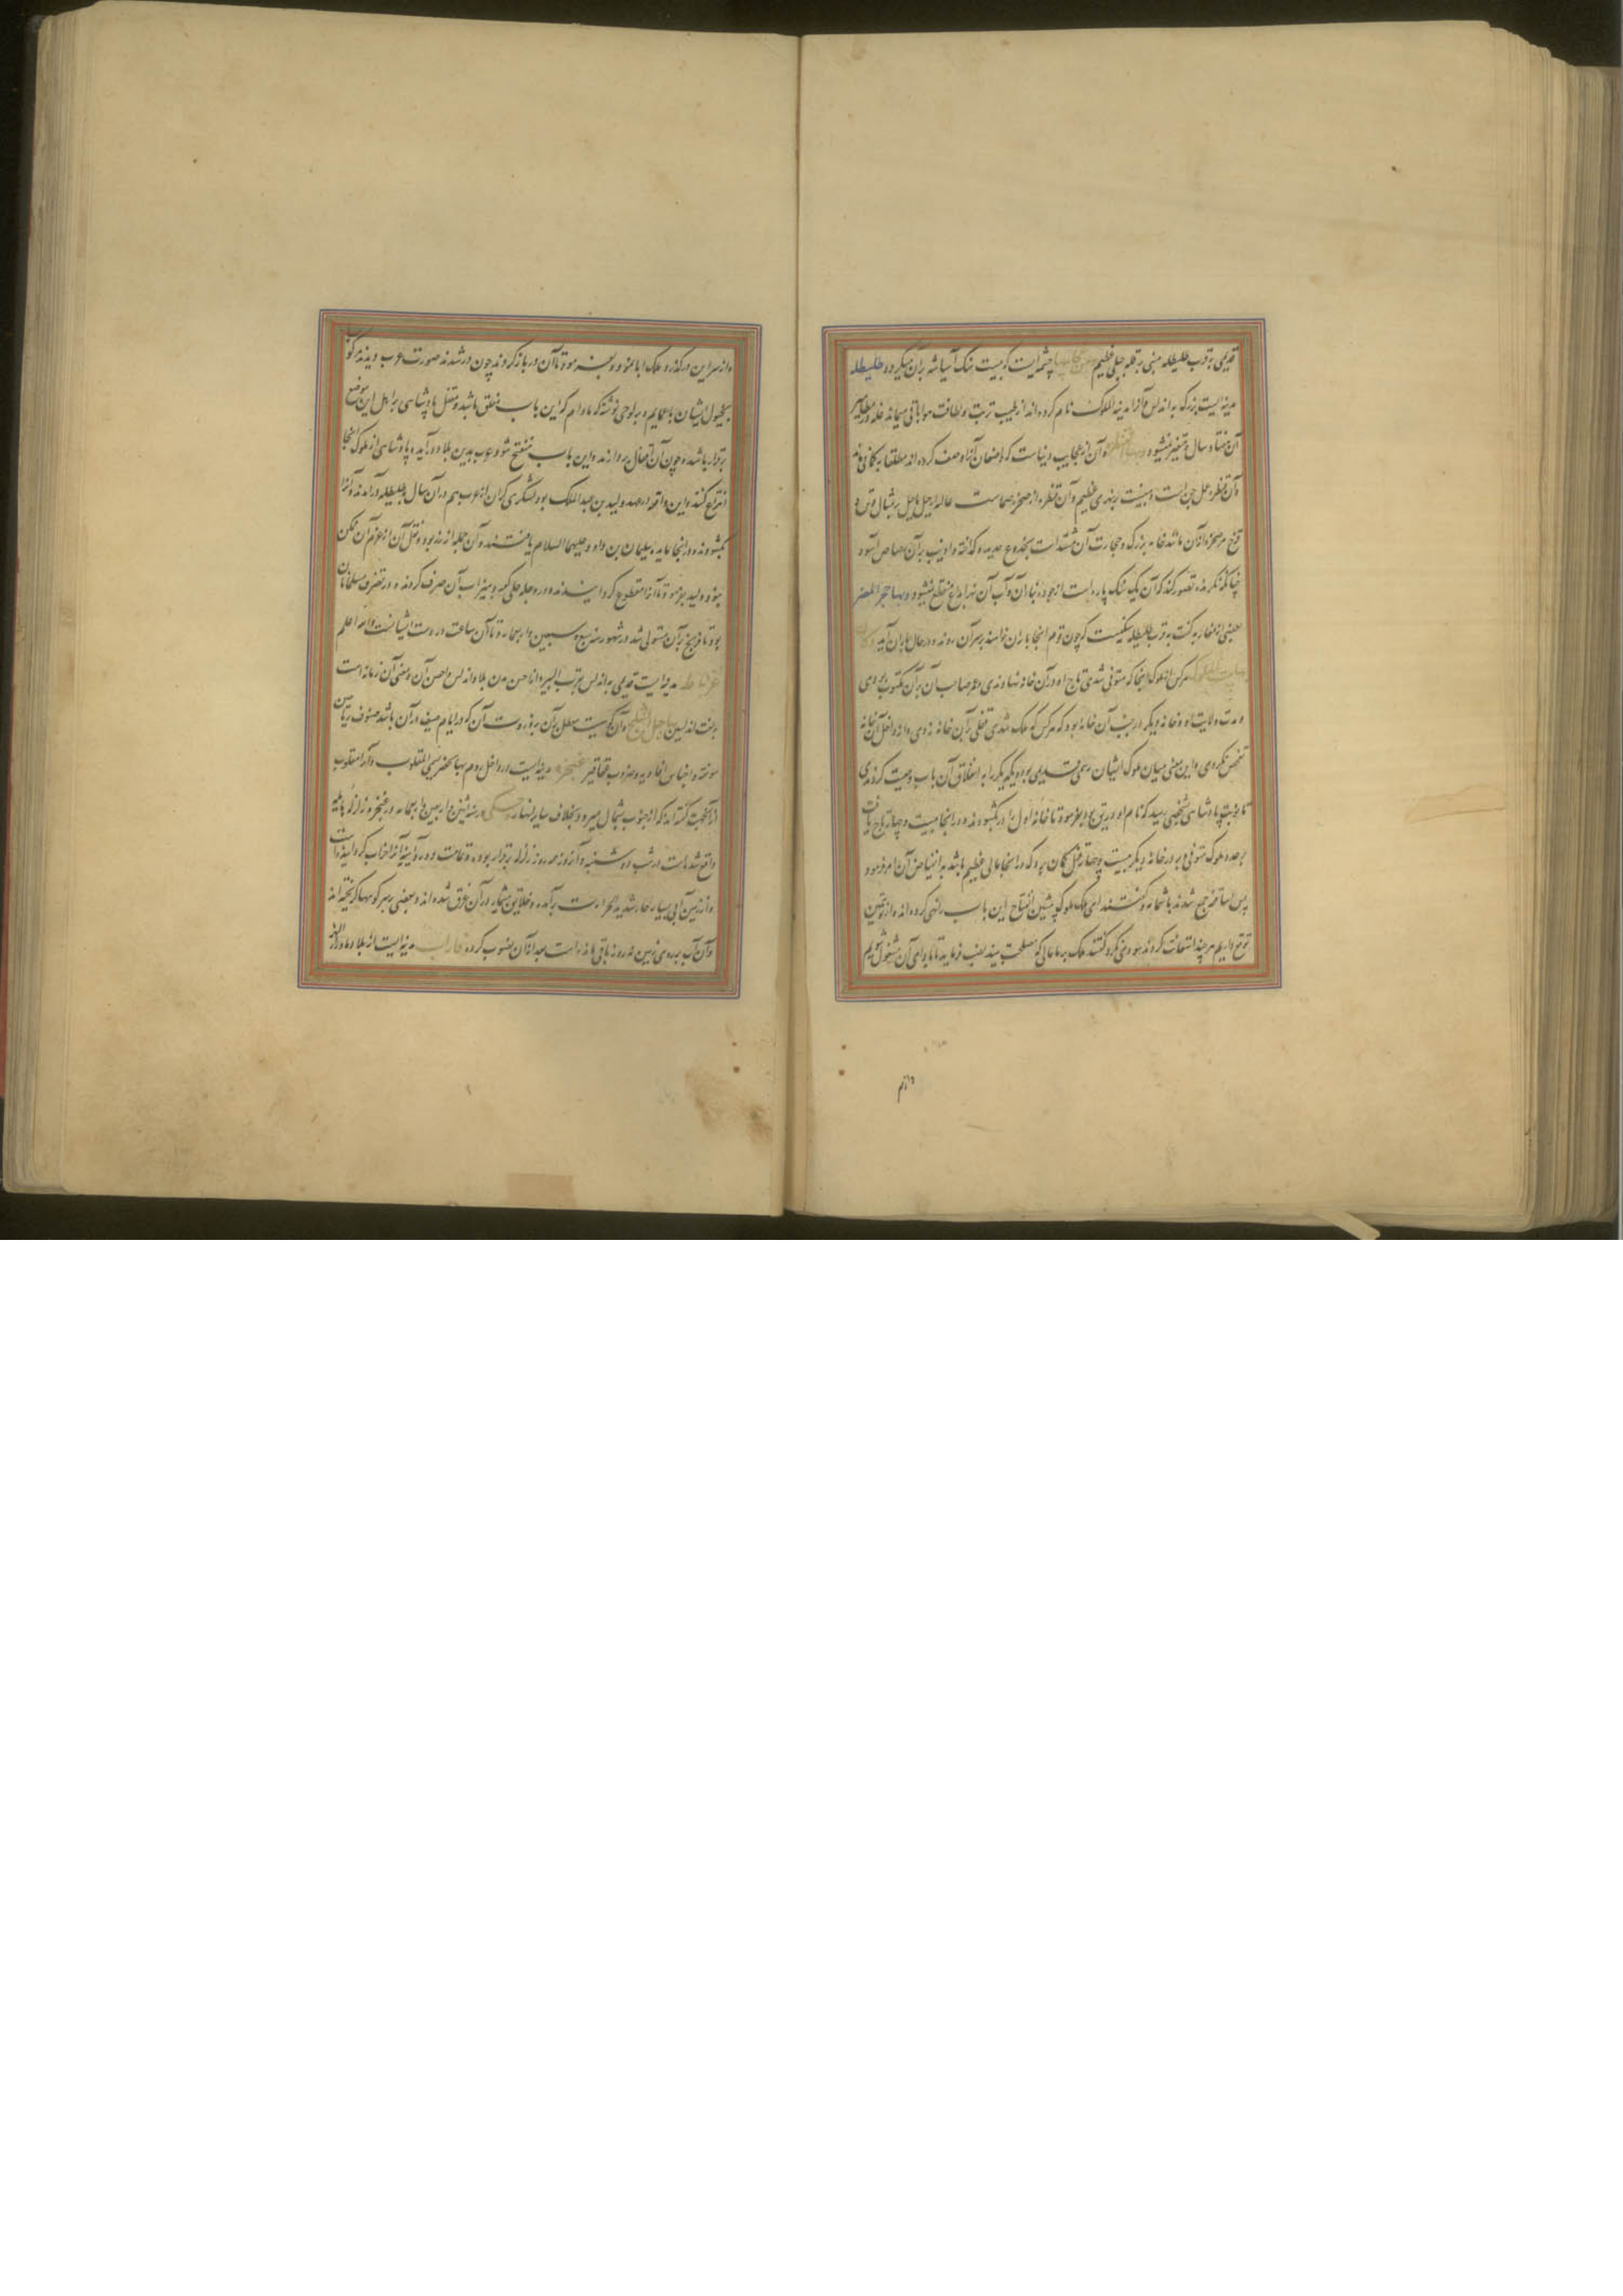 قدیمی بقرب طلیطله مبنی بر قله جبلی عظیم چشمه‌ایست که بیست سنک آسیا بر آن میکردد طلیطله
مدینه‌ایست بزرک به اندلس و آنرا مدینة الملوک نام کرده‌اند از طیب تربت و لطافت هوا باقی میماند غله در مطامیر
آن هفتاد سال و متغیر نمیشود و بها القنطره و آن از عجایب دنیاست که واصفان آنرا وصف کرده‌اند مطلقا به کمانی
و آن قنطره عمل جن است و مبنیست بر نهری عظیم و آن قنطره از صخره صماست
قزح هر صخره از آن مانند خانه بزرک و حجارت آن مشتد است بجذوع حدید و کداخته و اذیب بر آن رصاص اسود
چنانکه نکرنده تصور کند که آن یک سنک پاره است از جودت بنا آن و آب آن نهر ابدا منقطع نمیشود و بها حجر المطر
بعضی از مغاربه کفت بقرب طلیطله سنکیست که چون قوم انجا باران خواهند بر سر آن روند و در حال باران آید
بیت الملوک هر کس از ملوک انجا که متوفی شدی تاج او در آن خانه نهادندی و عمر صاحب آن بر آن مکتوب کردی
و مدت ولایت او و خانه دیکر در جنب آن خانه بود که هر کس که ملک شدی قفلی بر آن خانه زدی و از داخل آن خانه
تفحص نکردی و این معنی میان ملوک ایشان رسمی قدیمی بود و یکدیکر را به اغلاق آن باب وصیت کردندی
تا نوبت پادشاهی بشخصی رسید که نام او ذریق بود بفرمود تا خانه اول را در بکشودند و در انجا بیست و چهار تاج یافت
بر عدد ملوک متوفی بر در خانه دیکر بیست و چهار قفل کمان برد که در انجا مالی عظیم باشد به افتتاح آن امر فرمود
پس اساقفه جمع شدند با شمامسه و کفتند ای ملک ملوک پیشین افتتاح این باب را نهی کرده‌اند و از تو همین
توقع داریم هر چند استعانت کردند سودی نکرد کفتند ملک بر ما مالی که مصلحت بیند نصب فرماید تا ما با ادای آن مشغول شویم
و از سر این در کذرد ملک ابا نمود و بفرمود تا آن در باز کردند چون در شدند صورت عرب دیدند که کویا
بخیول ایشان با عمایم و بر لوحی نوشته که مادام که این باب مغلق باشد و مقفل پادشاهی بر اهل این موضع
برقرار باشد و چون آن اقفال بردارند و این باب منفتح شود عرب بدین بلاد درآید و پادشاهی از ملوک انجا
انتزاع کنند و این واقعه در عهد ولید بن عبد الملک بود لشکری کران از عرب هم در آن سال به طلیطله درآمدند و آنرا
بکشودند و در انجا مایده سلیمان بن داود علیهما السلام یافتند و آن جمله از زر بود و نقل آن از عزم آن ممکن
نبود ولید بفرمود تا آنرا مقطوع کردانیدند و در وجه حلی کعبه و میزاب آن صرف کردند و در تصرف مسلمانان
بود تا فرنج بر آن مستولی شد در شهور سنه سبع و سبعین و اربعمایه و تا آن ساعت در دست ایشانست و الله اعلم
غرناطه مدینه‌ایست قدیمی به اندلس بقرب البیره و از احسن مدن بلاد اندلس و احصن آن و معنی آن رمانه است
بلغت اندلسین بها جبل الثلج و آن کوهیست مطل بر آن بر ذروت آن که در ایام صیف در آن باشد صنوف ریاحین
مونقه و اجناس افاویه و ضروب عقاقیر غنجره مدینه‌ایست در داخل روم بها نهر یسمی المقلوب و آنرا مقلوب
از آن جهت کفته‌اند که از جنوب بشمال میرود بخلاف سایر انهار حکی در سنه اثنین و اربعین و اربعمایه در غنجره زلزله هایله
واقع شد است در شب دوشنبه و آنروز همه روز زلزله برقرار بوده و
و از زمین آبی بسیار حار شدید الحرارت برآمده و خلایق بیشمار در آن غرق شده‌اند و بعضی بر سر کوهها کریخته‌اند
و آن آب بر روی زمین نه روز باقی مانده است بعد از آن نضوب کرده فاراب مدینه‌ایست از بلاد ماوراء النهر